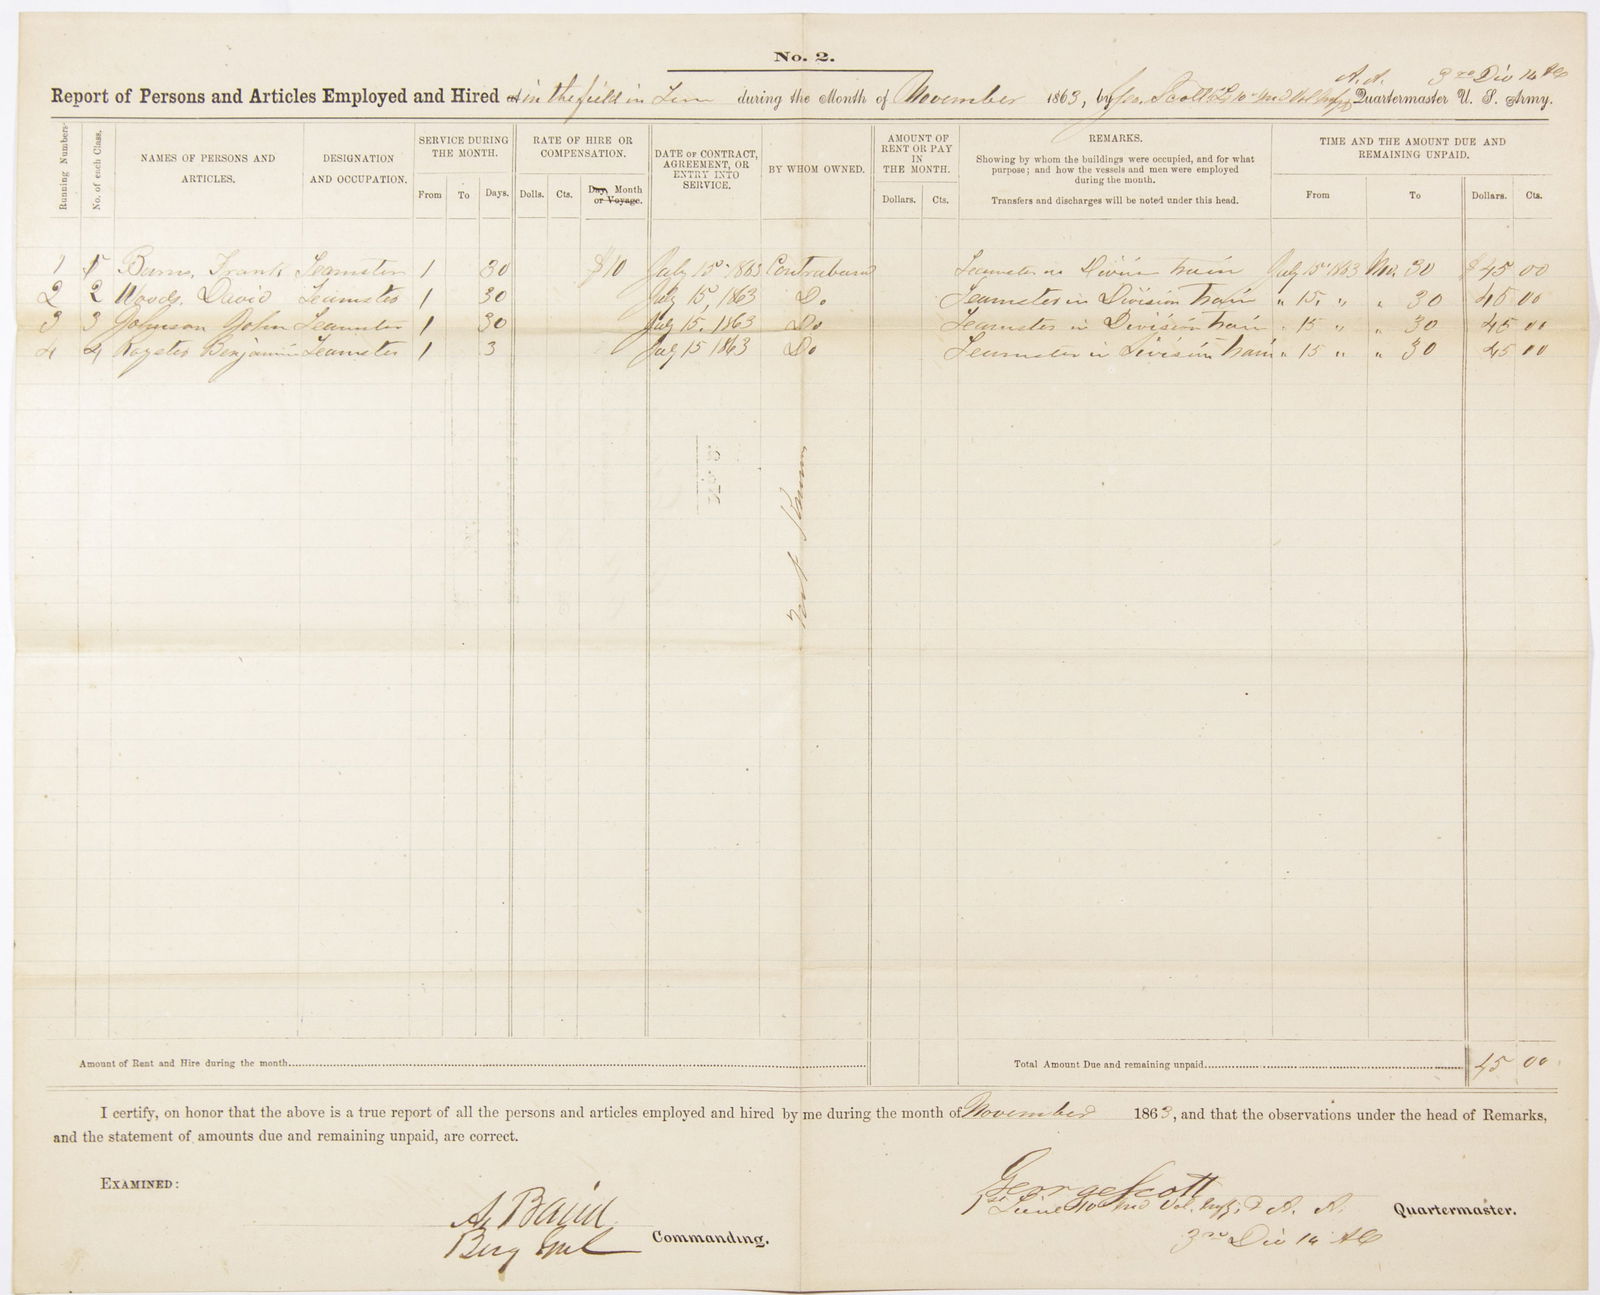 No. 2.
A. A. 3rd Div 14 AC
Report of Persons and Articles Employed and Hired at in the field in Tenn during the Month of November 1863, by Geo. Scott Quartermaster U. S. Army.
Running Numbers.
No. of each Class.
NAMES OF PERSONS AND ARTICLES.
DESIGNATION AND OCCUPATION.
SERVICE DURING THE MONTH.
From To Days.
RATE OF HIRE OR COMPENSATION.
Dolls. Cts. Day, Month or Voyage.
DATE OF CONTRACT, AGREEMENT, OR ENTRY INTO SERVICE.
BY WHOM OWNED.
AMOUNT OF RENT OR PAY IN THE MONTH.
Dollars. Cts.
REMARKS.
Showing by whom the buildings were occupied, and for what purpose; and how the vessels and men were employed during the month.
Transfers and discharges will be noted under this head.
TIME AND THE AMOUNT DUE AND REMAINING UNPAID.
From To Dollars. Cts.
1 1 Barns, Frank Teamster 1 30 $10 July 15" 1863 Contraband Teamster in Division train July 15" 1863 Nov. 30 $45 00
2 2 Woods, David Teamster 1 30 July 15, 1863 Do Teamster in Division train " 15, " " 30 45 00
3 3 Johnson John Teamster 1 30 July 15, 1863 Do Teamster in Division train " 15 " " 30 45 00
4 4 Royster Benjamin Teamster 1 3 July 15 1863 Do Teamster in Division train " 15 " " 30 45 00
Amount of Rent and Hire during the month
Total Amount Due and remaining unpaid 45 00
I certify, on honor that the above is a true report of all the persons and articles employed and hired by me during the month of November 1863, and that the observations under the head of Remarks,
and the statement of amounts due and remaining unpaid, are correct.
EXAMINED:
A. Baird
Brig Genl Commanding.
George Scott
1st Lieut 10 Ind Vol. Infy, & A. A. Quartermaster.
3rd Div 14 AC